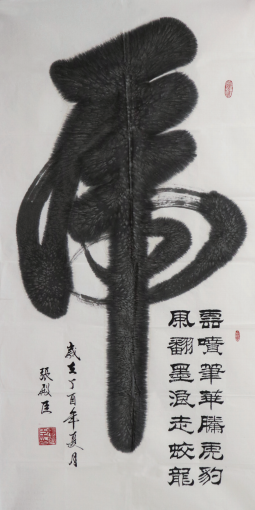 虎
雲噴筆華騰虎豹
風翻墨浪走蛟龍
歲在丁酉年夏月
張殿臣